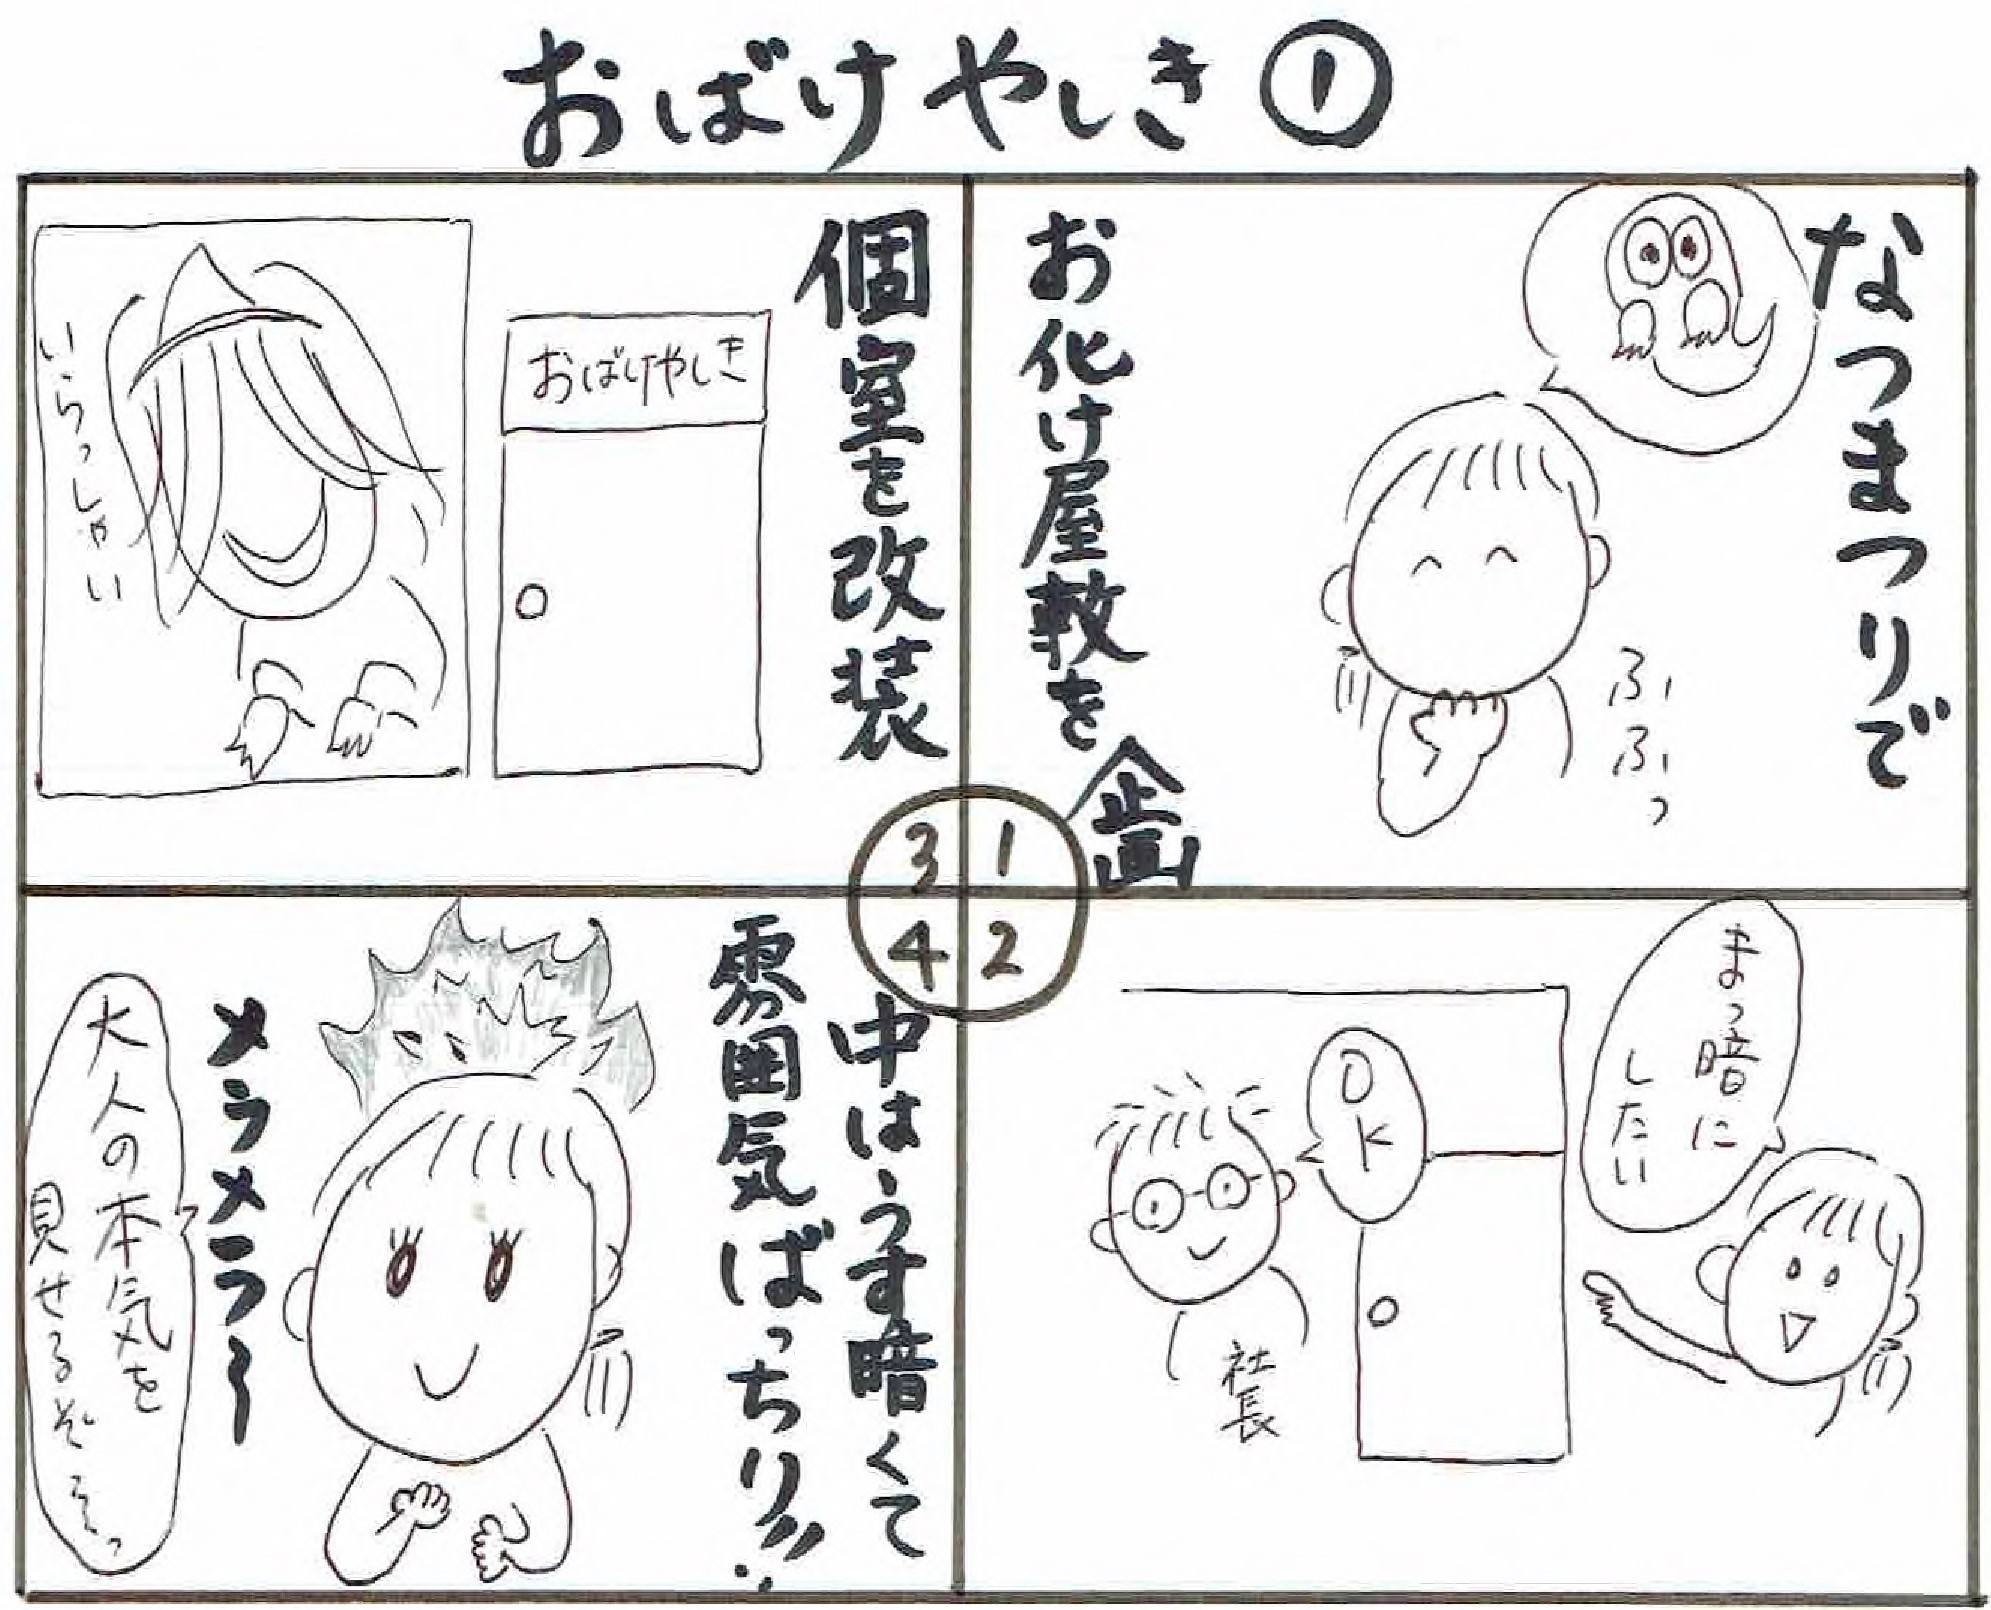 おばけやしき①
なつまつりで
お化け屋敷を
企画
ふふっ
1
2
3
4
まっ暗に
したい
OK
社長
個室を改装
おばけやしき
いらっしゃい
中はうす暗くて
雰囲気ばっちり!!
メラメラ〜
大人の本気を
見せるぞぞっ